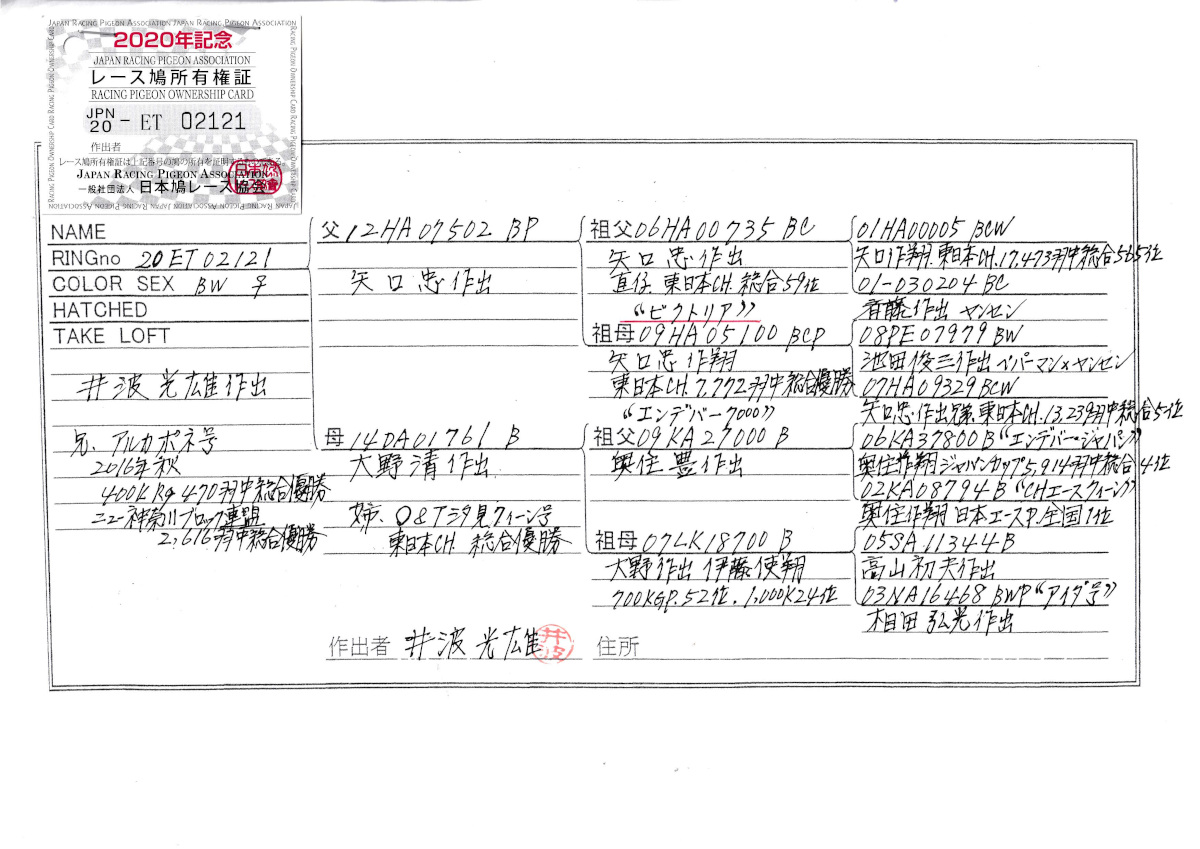 JAPAN RACING PIGEON ASSOCIATION JAPAN RACING PIGEON ASSOCIATION
2020年記念
JAPAN RACING PIGEON ASSOCIATION
レース鳩所有権証
RACING PIGEON OWNERSHIP CARD
JPN 20 - ET 02121
作出者
レース鳩所有権証は上記番号の鳩の所有を証明するものである。
JAPAN RACING PIGEON ASSOCIATION
一般社団法人 日本鳩レース協会
NAME
RINGno 20ET02121
COLOR SEX BW ♀
HATCHED
TAKE LOFT
井波光雄作出
兄、アルカポネ号
2016年秋
400KRg 470羽中総合優勝
ニュー神奈川ブロック連盟
2,616羽中総合優勝
父12HA07502 BP
矢口忠作出
母14DA01761 B
大野清作出
姉、O&T汐見クィーン号
東日本CH. 総合優勝
祖父06HA00735 BC
矢口忠作出
直仔.東日本CH.総合59位
“ビクトリア”
祖母09HA05100 BCP
矢口忠作翔
東日本CH.7,772羽中総合優勝
“エンデバー7000”
祖父09KA27000 B
奥住豊作出
祖母07LK18700 B
大野作出 伊藤使翔
700KGP.52位.1,000K24位
01HA00005 BCW
矢口作翔.東日本CH.17,473羽中総合565位
01-030204 BC
斉藤作出 ヤンセン
08PE07979 BW
池田俊三作出 ペパーマン×ヤンセン
07HA09329 BCW
矢口忠作出.東日本CH.13,239羽中総合5位
06KA37800B“エンデバー・ジャパン”
奥住作翔ジャパンカップ5,914羽中総合4位
02KA08794B“CHエースクィーン”
奥住作翔 日本エースP.全国1位
05SA11344B
高山初夫作出
03NA16468 BWP“アイダ号”
相田弘光作出
作出者 井波光雄 井波
住所